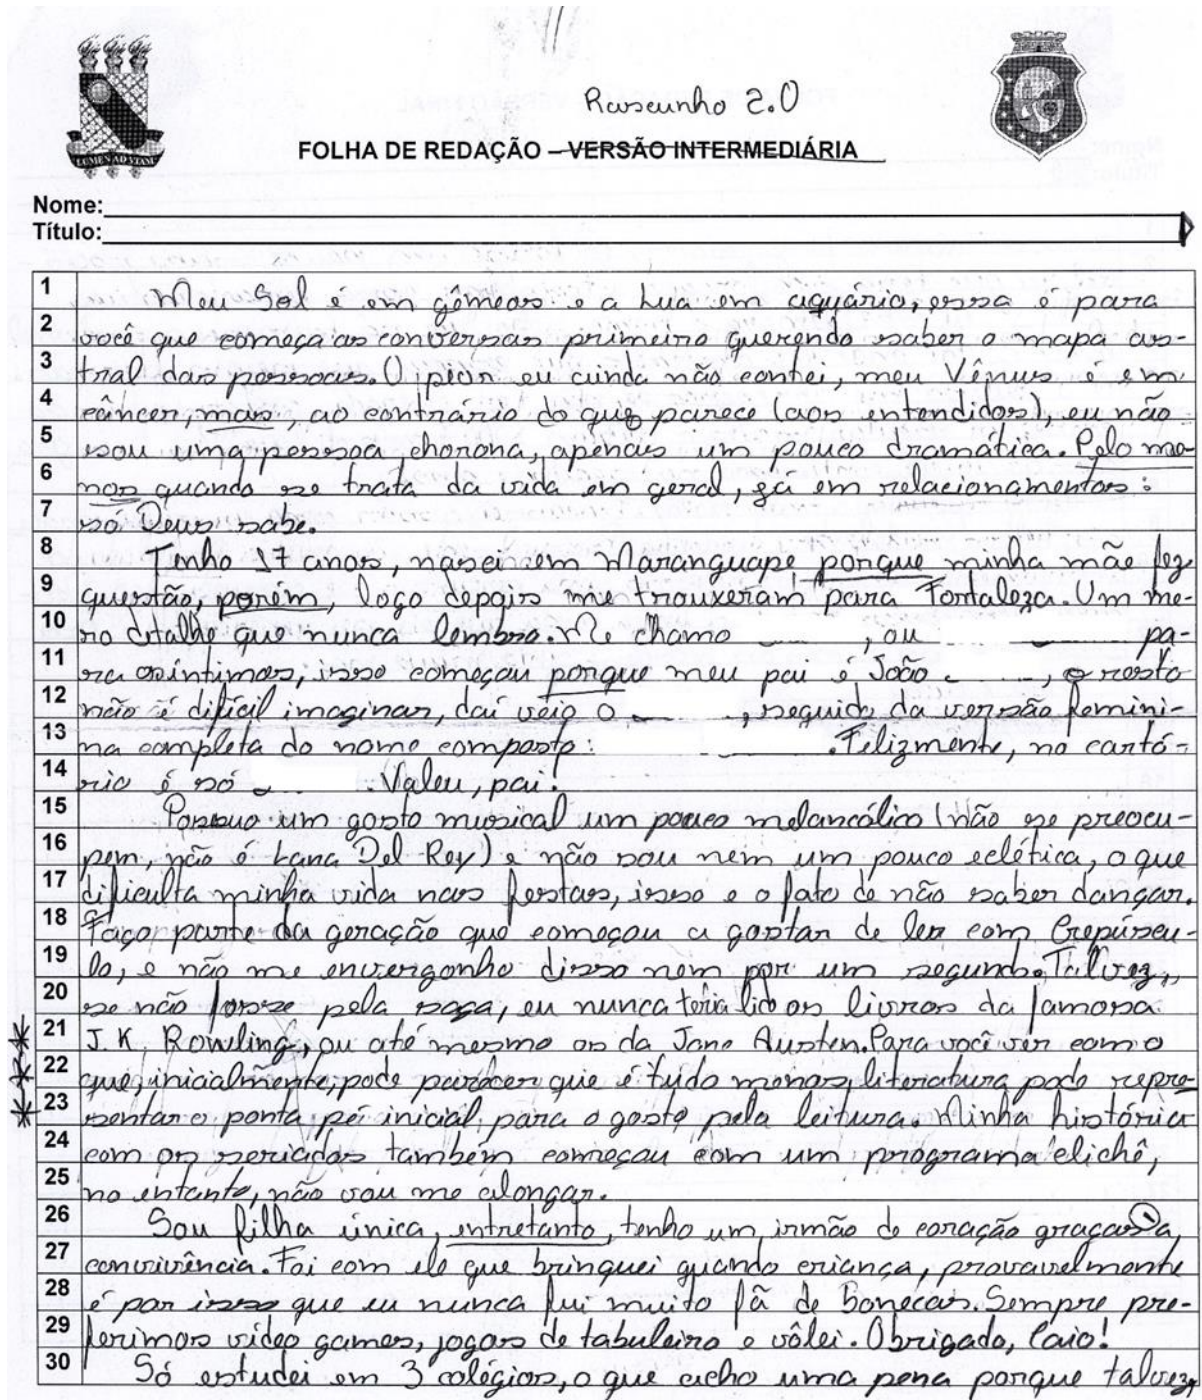 Rascunho 2.0
FOLHA DE REDAÇÃO – VERSÃO INTERMEDIÁRIA
Nome:
Título:
1 Meu Sol é em gêmeos e a Lua em aquário, essa é para
2 você que começa as conversas primeiro querendo saber o mapa as-
3 tral das pessoas. O pior eu ainda não contei, meu Vênus é em
4 câncer, mas, ao contrário do que parece (aos entendidos), eu não
5 sou uma pessoa chorona, apenas um pouco dramática. Pelo me-
6 nos quando se trata da vida em geral, já em relacionamentos:
7 só Deus sabe.
8 Tenho 17 anos, nasci em Maranguape porque minha mãe fez
9 questão, porém, logo depois me trouxeram para Fortaleza. Um me-
10 ro detalhe que nunca lembro. Me chamo , ou pa-
11 ra os íntimos, isso começou porque meu pai é João , o resto
12 não é difícil imaginar, daí veio o , seguido da versão femini-
13 na completa do nome composto: . Felizmente, no cartó-
14 rio é só . Valeu, pai!
15 Possuo um gosto musical um pouco melancólico (não se preocu-
16 pem, não é Lana Del Rey) e não sou nem um pouco eclética, o que
17 dificulta minha vida nas festas, isso e o fato de não saber dançar.
18 Faço parte da geração que começou a gostar de ler com Crepúscu-
19 lo, e não me envergonho disso nem por um segundo. Talvez,
20 se não fosse pela saga, eu nunca teria lido os livros da famosa
21 J.K. Rowling, ou até mesmo os da Jane Austen. Para você ver como
22 que, inicialmente, pode parecer que é tudo menos literatura pode repre-
23 sentar o ponta pé inicial para o gosto pela leitura. Minha história
24 com os seriados também começou com um programa clichê,
25 no entanto, não vou me alongar.
26 Sou filha única, entretanto, tenho um irmão de coração graças a
27 convivência. Foi com ele que brinquei quando criança, provavelmente
28 é por isso que eu nunca fui muito fã de Bonecas. Sempre pre-
29 ferimos vídeo games, jogos de tabuleiro e vôlei. Obrigado, Caio!
30 Só estudei em 3 colégios, o que acho uma pena porque talvez,